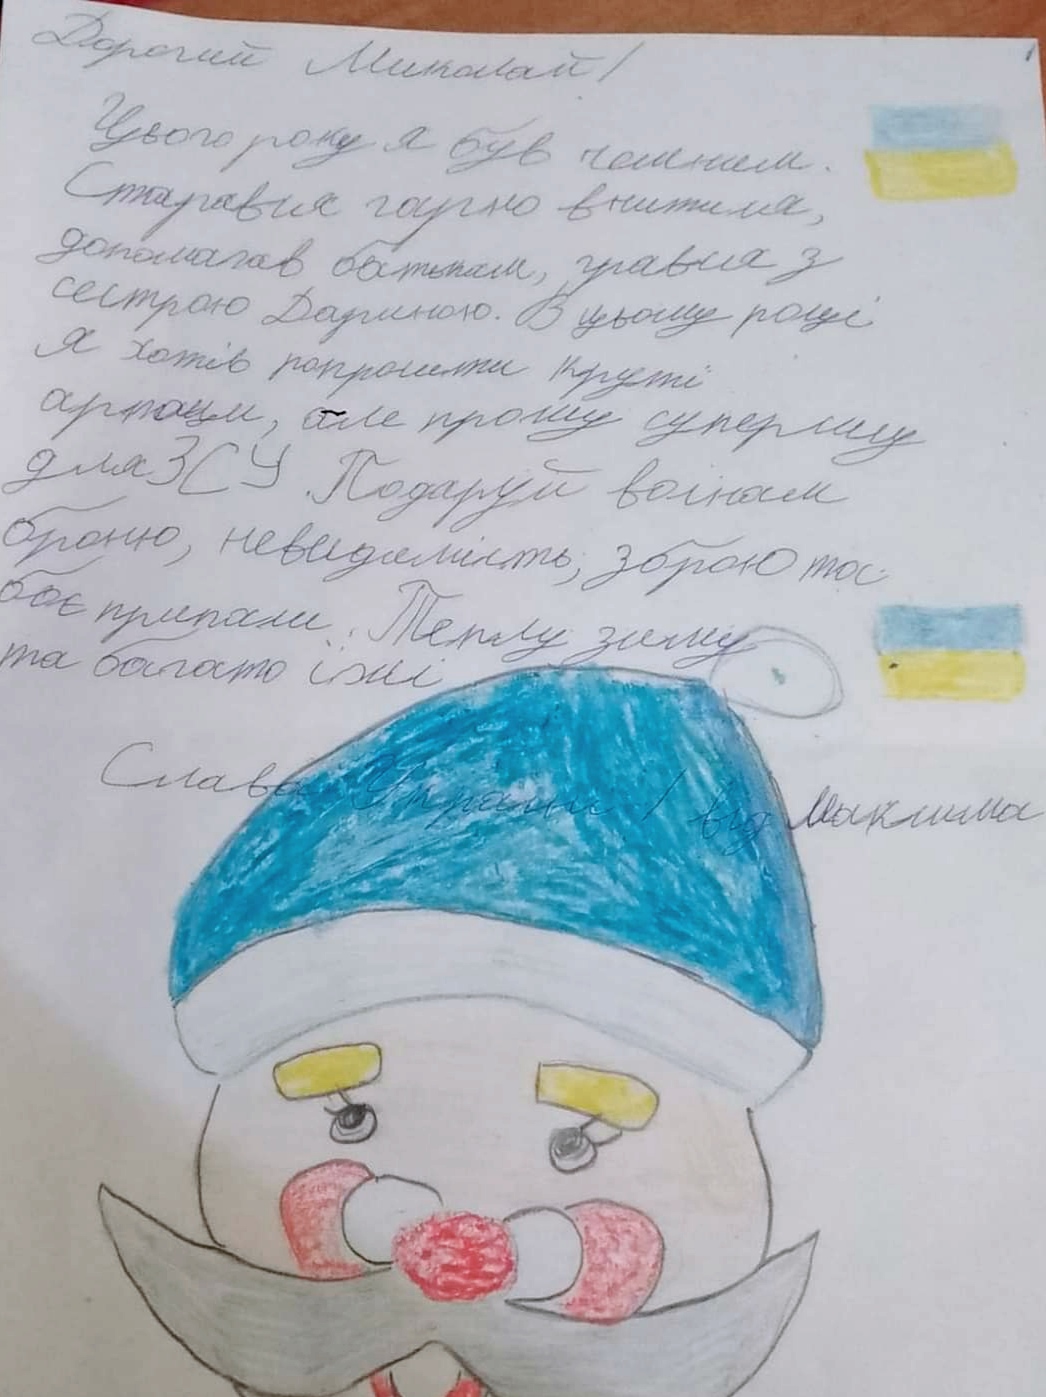 Дорогий Миколай!
Цього року я був чемним.
Старався гарно вчитися,
допомагав батькам, грався з
сестрою Дариною. В цьому році
я хотів попросити круті
арподи, але прошу суперсилу
для ЗСУ. Подаруй воїнам
броню, невидимість, зброю та
боє припаси. Теплу зиму
та багато їжі
Слава Україні! від Максима